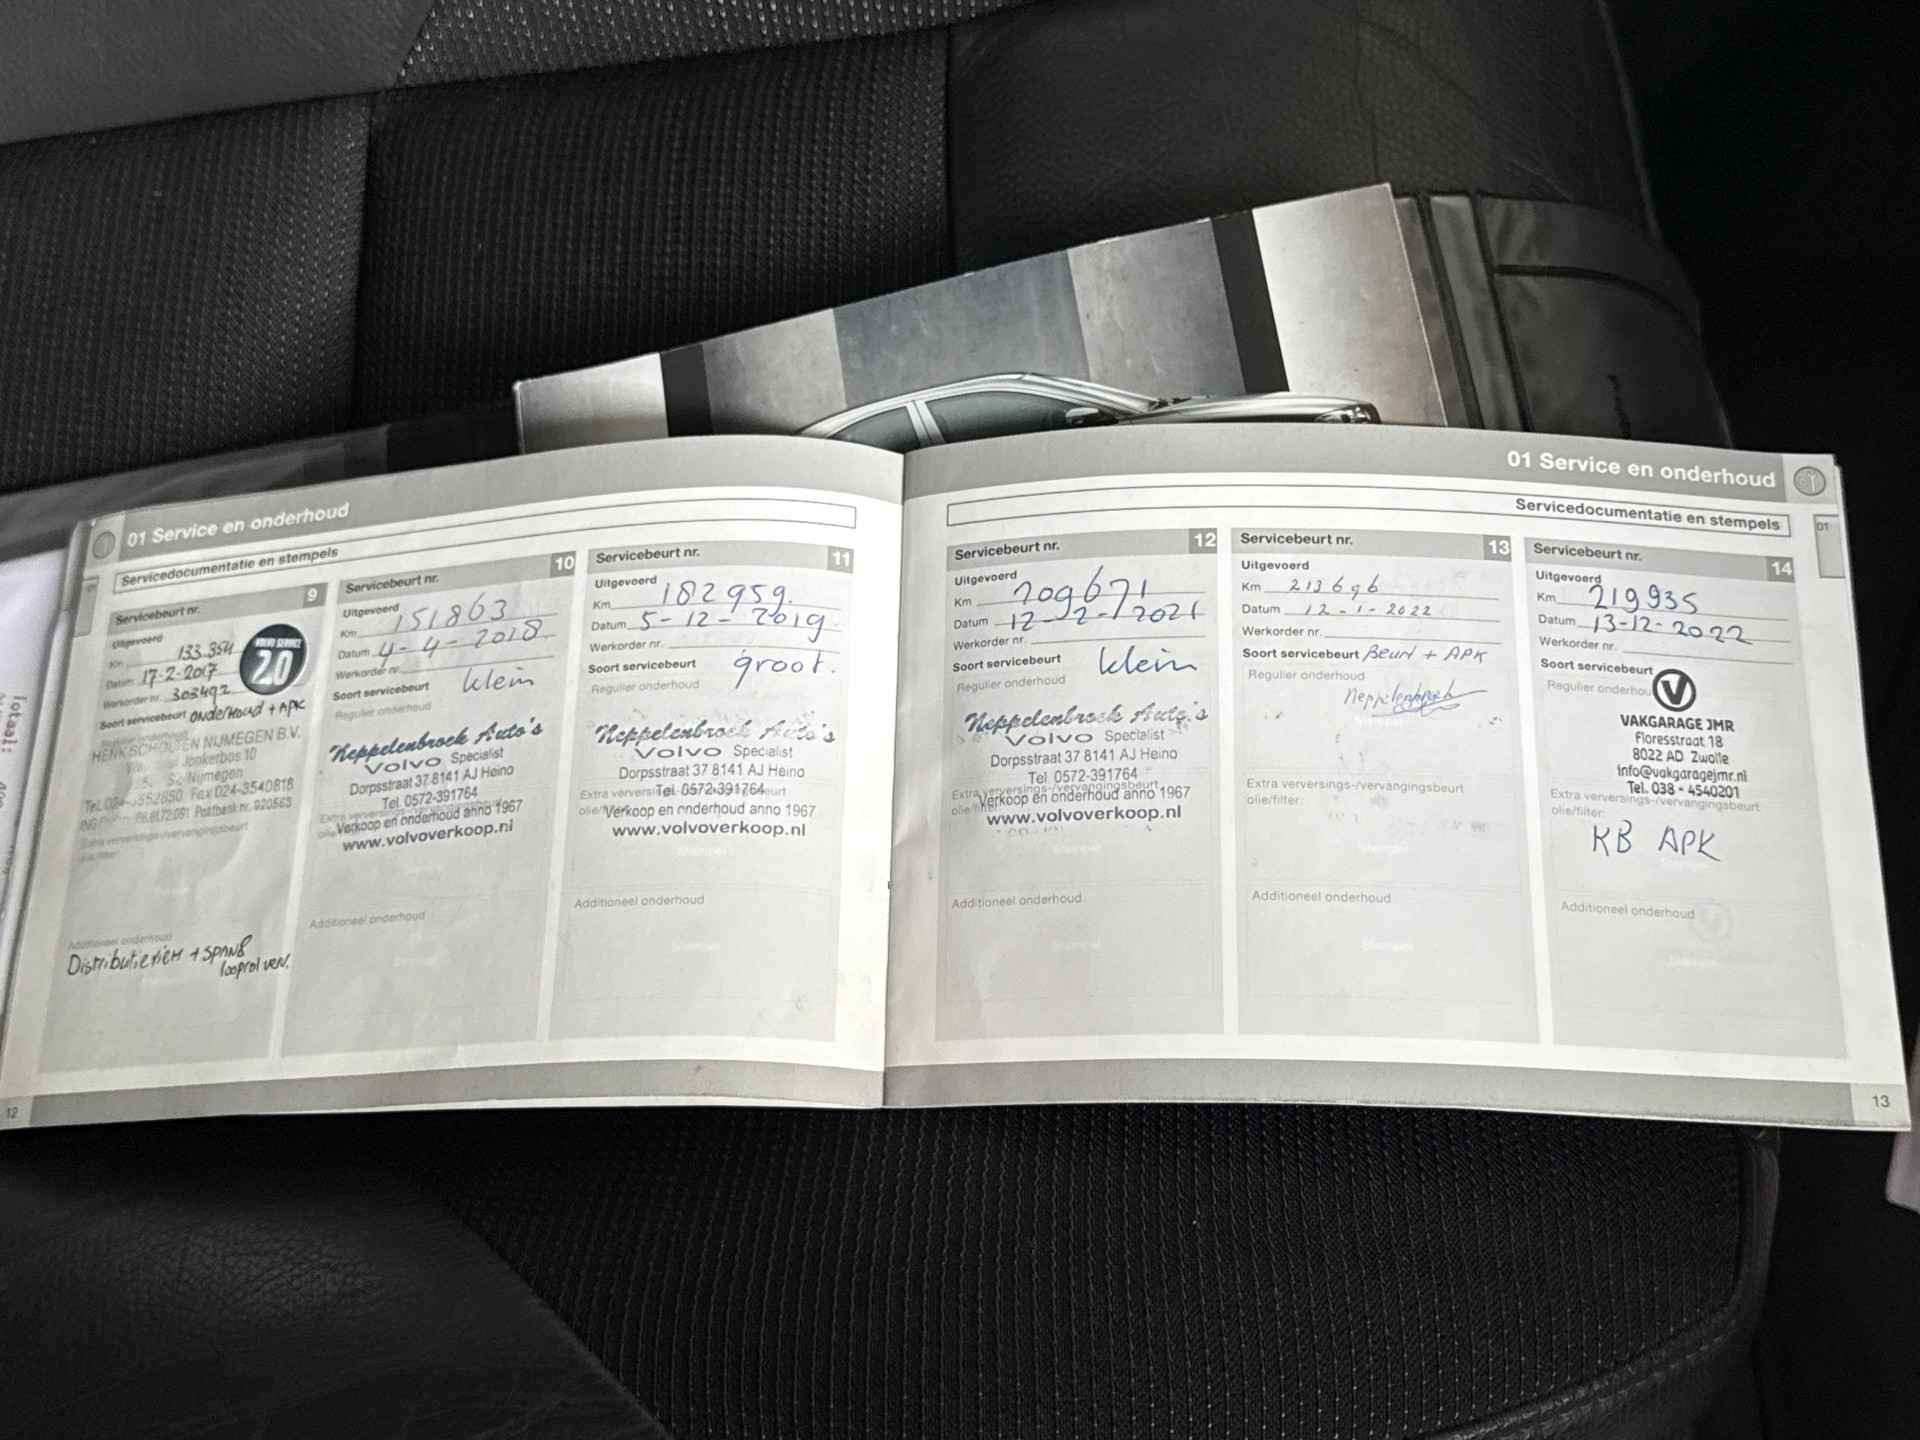 01 Service en onderhoud
Servicedocumentatie en stempels
Servicebeurt nr. 9
Uitgevoerd
Km 133.354
Datum 17-2-2017
Werkorder nr. 303492
Soort servicebeurt Onderhoud + APK
VOLVO SERVICE
2.0
HENK SCHOLTEN NIJMEGEN B.V.
Jonkerbos 10
Nijmegen
Tel. 024-3552850 Fax 024-3540818
Postbank nr. 920563
Extra verversings-/vervangingsbeurt
olie/filter:
Additioneel onderhoud
Distributieriem + SPAN&
looprol VERV.
Servicebeurt nr. 10
Uitgevoerd
Km 151863
Datum 4-4-2018
Werkorder nr.
Soort servicebeurt klein
Regulier onderhoud
Neppelenbroek Auto's
Volvo Specialist
Dorpsstraat 37 8141 AJ Heino
Tel. 0572-391764
Verkoop en onderhoud anno 1967
www.volvoverkoop.nl
Additioneel onderhoud
Servicebeurt nr. 11
Uitgevoerd
Km 182959
Datum 5-12-2019
Werkorder nr.
Soort servicebeurt groot.
Regulier onderhoud
Neppelenbroek Auto's
Volvo Specialist
Dorpsstraat 37 8141 AJ Heino
Tel. 0572-391764
Verkoop en onderhoud anno 1967
www.volvoverkoop.nl
Stempel
Additioneel onderhoud
12
01 Service en onderhoud
Servicedocumentatie en stempels
01
Servicebeurt nr. 12
Uitgevoerd
Km 209671
Datum 12-2-2021
Werkorder nr.
Soort servicebeurt klein
Regulier onderhoud
Neppelenbroek Auto's
Volvo Specialist
Dorpsstraat 37 8141 AJ Heino
Tel. 0572-391764
Extra verversings-/vervangingsbeurt
olie/filter:
Verkoop en onderhoud anno 1967
www.volvoverkoop.nl
Stempel
Additioneel onderhoud
Stempel
Servicebeurt nr. 13
Uitgevoerd
Km 213696
Datum 12-1-2022
Werkorder nr.
Soort servicebeurt Beurt + APK
Regulier onderhoud
Neppelenbroek
Stempel
Extra verversings-/vervangingsbeurt
olie/filter:
Stempel
Additioneel onderhoud
Stempel
Servicebeurt nr. 14
Uitgevoerd
Km 219935
Datum 13-12-2022
Werkorder nr.
Soort servicebeurt
Regulier onderhoud
V
VAKGARAGE JMR
Floresstraat 18
8022 AD Zwolle
info@vakgaragejmr.nl
Tel. 038 - 4540201
Extra verversings-/vervangingsbeurt
olie/filter:
KB APK
Additioneel onderhoud
13
Totaal: